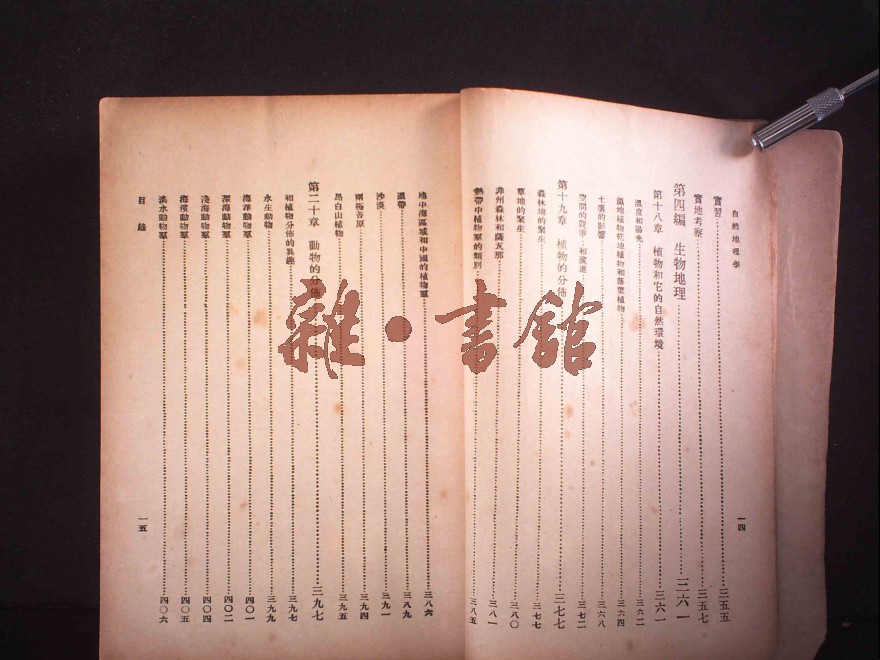 自然地理學
實習…三五五
實地考察…三五七
第四編 生物地理…三六一
第十八章 植物和它的自然環境…三六一
溫度和陽光…三六二
濕地植物乾地植物和落葉植物…三六四
土壤的影響…三六八
空間的競爭和演進…三七二
第十九章 植物的分佈…三七七
森林地的叢生…三七七
草地的叢生…三八〇
非州森林和薩瓦那…三八一
熱帶中植物羣的類別…三八五
一四
地中海區域和中國的植物羣…三八六
溫帶…三八九
沙漠…三九一
兩極苔原…三九四
高山植物…三九五
第二十章 動物的分佈…三九七
和植物分佈的異趣…三九七
水生動物…三九九
海洋動物羣…四〇一
深海動物羣…四〇二
淺海動物羣…四〇四
海濱動物羣…四〇五
淡水動物羣…四〇六
目錄
一五
雜·書館